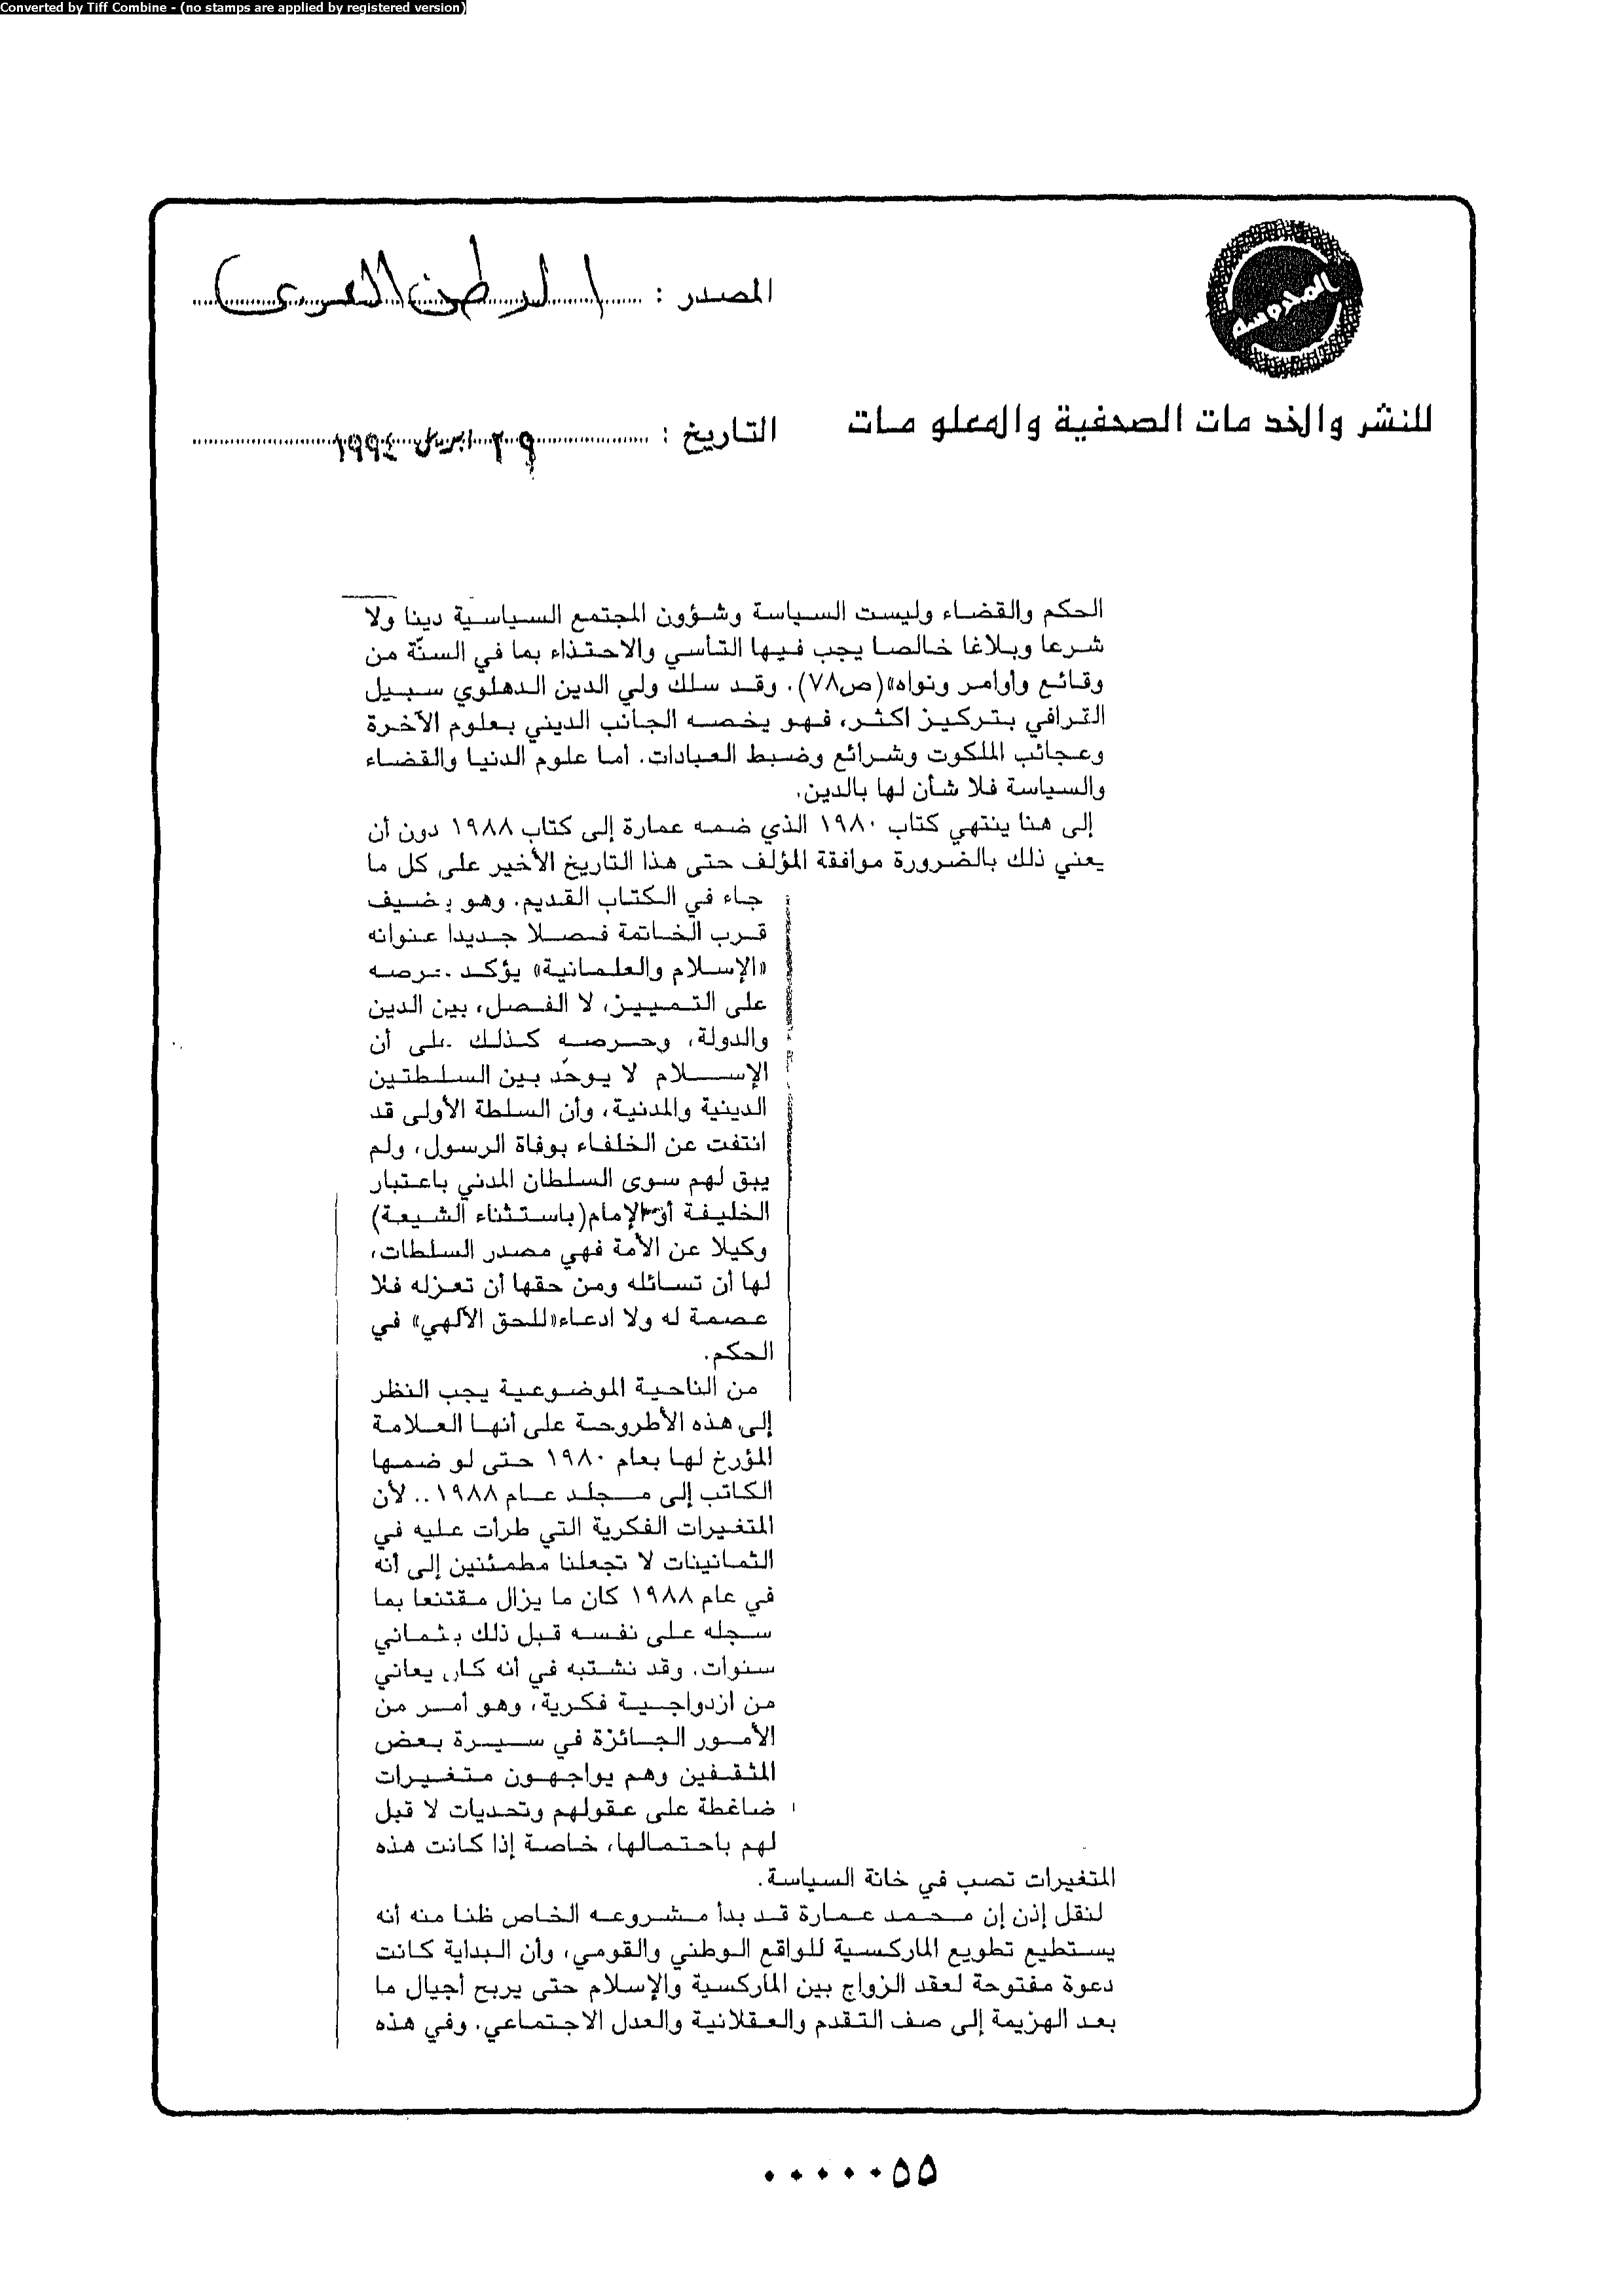 Converted by Tiff Combine - (no stamps are applied by registered version)
المحروسة
المصدر : الوطن العربي
للنشر والخدمات الصحفية والمعلومات
التاريخ : ٢٩ ابريل ١٩٩٤
الحكم والقضاء وليست السياسة وشؤون المجتمع السياسية دينا ولا
شرعا وبلاغا خالصا يجب فيها التأسي والاحتذاء بما في السنّة من
وقائع وأوامر ونواه»(ص٧٨). وقد سلك ولي الدين الدهلوي سبيل
القرافي بتركيز اكثر، فهو يخصه الجانب الديني بعلوم الآخرة
وعجائب الملكوت وشرائع وضبط العبادات. أما علوم الدنيا والقضاء
والسياسة فلا شأن لها بالدين.
إلى هنا ينتهي كتاب ١٩٨٠ الذي ضمه عمارة إلى كتاب ١٩٨٨ دون أن
يعني ذلك بالضرورة موافقة المؤلف حتى هذا التاريخ الأخير على كل ما
جاء في الكتاب القديم. وهو يضيف
قرب الخاتمة فصلا جديدا عنوانه
«الإسلام والعلمانية» يؤكد حرصه
على التمييز، لا الفصل، بين الدين
والدولة، وحرصه كذلك على أن
الإسلام لا يوحّد بين السلطتين
الدينية والمدنية، وأن السلطة الأولى قد
انتفت عن الخلفاء بوفاة الرسول، ولم
يبق لهم سوى السلطان المدني باعتبار
الخليفة أو الإمام(باستثناء الشيعة)
وكيلا عن الأمة فهي مصدر السلطات،
لها أن تسائله ومن حقها أن تعزله فلا
عصمة له ولا ادعاء«للحق الآلهي» في
الحكم.
من الناحية الموضوعية يجب النظر
إلى هذه الأطروحة على أنها العلامة
المؤرخ لها بعام ١٩٨٠ حتى لو ضمها
الكاتب إلى مجلد عام ١٩٨٨.. لأن
المتغيرات الفكرية التي طرأت عليه في
الثمانينات لا تجعلنا مطمئنين إلى أنه
في عام ١٩٨٨ كان ما يزال مقتنعا بما
سجله على نفسه قبل ذلك بثماني
سنوات. وقد نشتبه في أنه كان يعاني
من ازدواجية فكرية، وهو أمر من
الأمور الجائزة في سيرة بعض
المثقفين وهم يواجهون متغيرات
ضاغطة على عقولهم وتحديات لا قبل
لهم باحتمالها، خاصة إذا كانت هذه
المتغيرات تصب في خانة السياسة.
لنقل إذن إن محمد عمارة قد بدأ مشروعه الخاص ظنا منه أنه
يستطيع تطويع الماركسية للواقع الوطني والقومي، وأن البداية كانت
دعوة مفتوحة لعقد الزواج بين الماركسية والإسلام حتى يربح أجيال ما
بعد الهزيمة إلى صف التقدم والعقلانية والعدل الاجتماعي. وفي هذه
٠٠٠٠٠٥٥